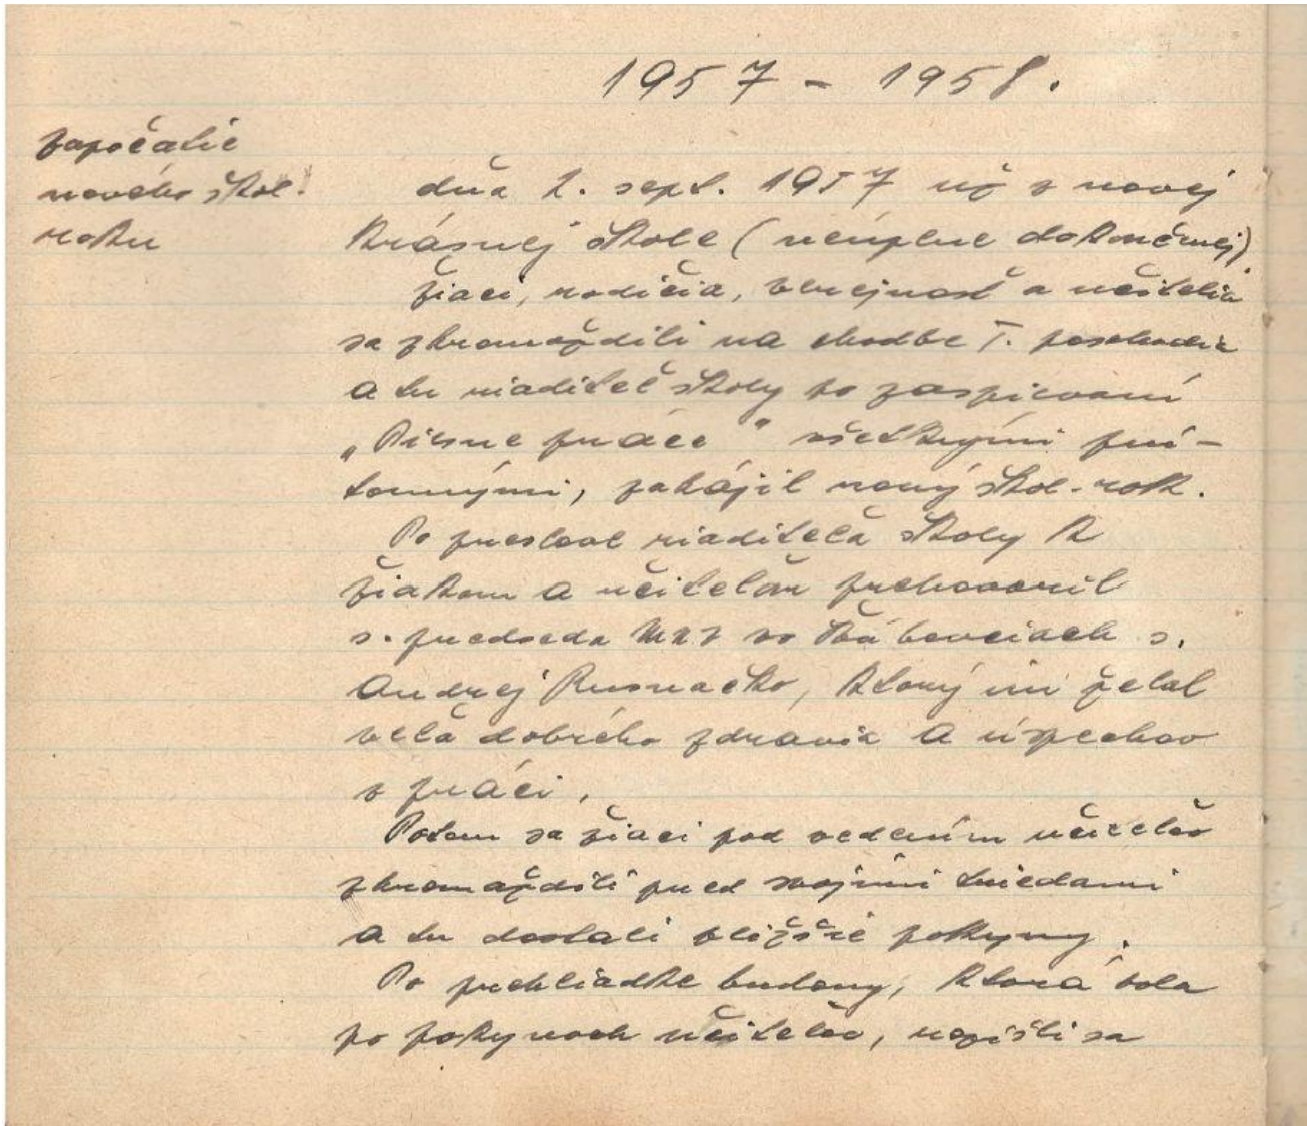 1957 – 1958.
započatie
nového škol.
roku
dňa 2. sept. 1957 už v novej
krásnej škole (neúplne dokončenej)
žiaci, rodičia, verejnosť a učitelia
sa zhromaždili na chodbe I. poschodia
a tu riaditeľ školy po zaspievaní
„Piesne práce" všetkými prí-
tomnými, zahájil nový škol. rok.
Po preslove riaditeľa školy k
žiakom a učiteľom prehovoril
s. predseda MNV vo s.
Andrej Rusnačko, ktorý im želal
veľa dobrého zdravia a úspechov
v práci.
Potom sa žiaci pod vedením učiteľov
zhromaždili pred svojimi triedami
a tu dostali bližšie pokyny.
Po prehliadke budovy, ktorá bola
po pokynoch učiteľov, sa